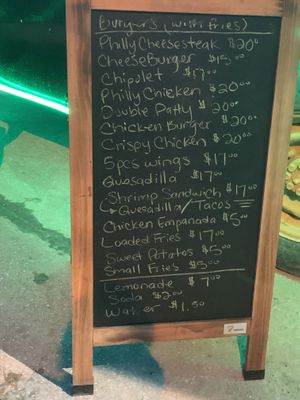 Burgers (with fries)
Philly Cheesesteak $20⁰
CheeseBurger $15⁰⁰
Chipolet $17⁰⁰
Philly Chicken $20⁰⁰
Double Patty $20⁰⁰
Chicken Burger $20⁰⁰
Crispy Chicken $20⁰⁰
5pcs wings $17⁰⁰
Quesadilla $17⁰⁰
Shrimp Sandwich $17⁰⁰
↳ Quesadilla/Tacos
Chicken Empanada $5⁰⁰
Loaded Fries $17⁰⁰
Sweet Potatos $5⁰⁰
Small Fries $5⁰⁰
Lemonade $7⁰⁰
Soda $2⁰⁰
Water $1.50